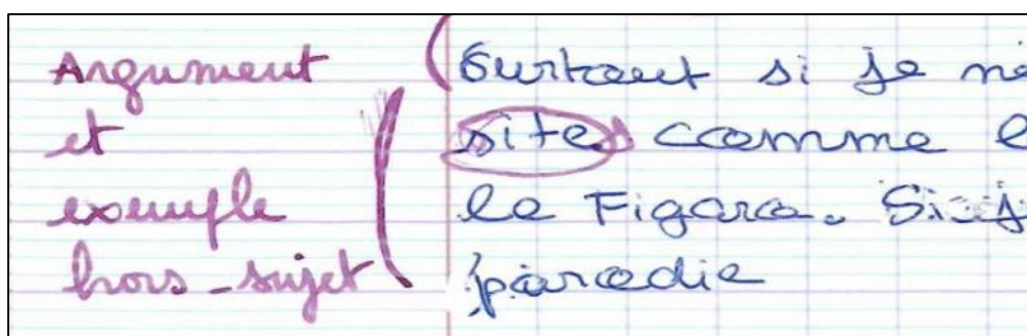 Argument
et
exemple
hors-sujet
Surtout si je
site comme
le Figaro. Si j
parodie